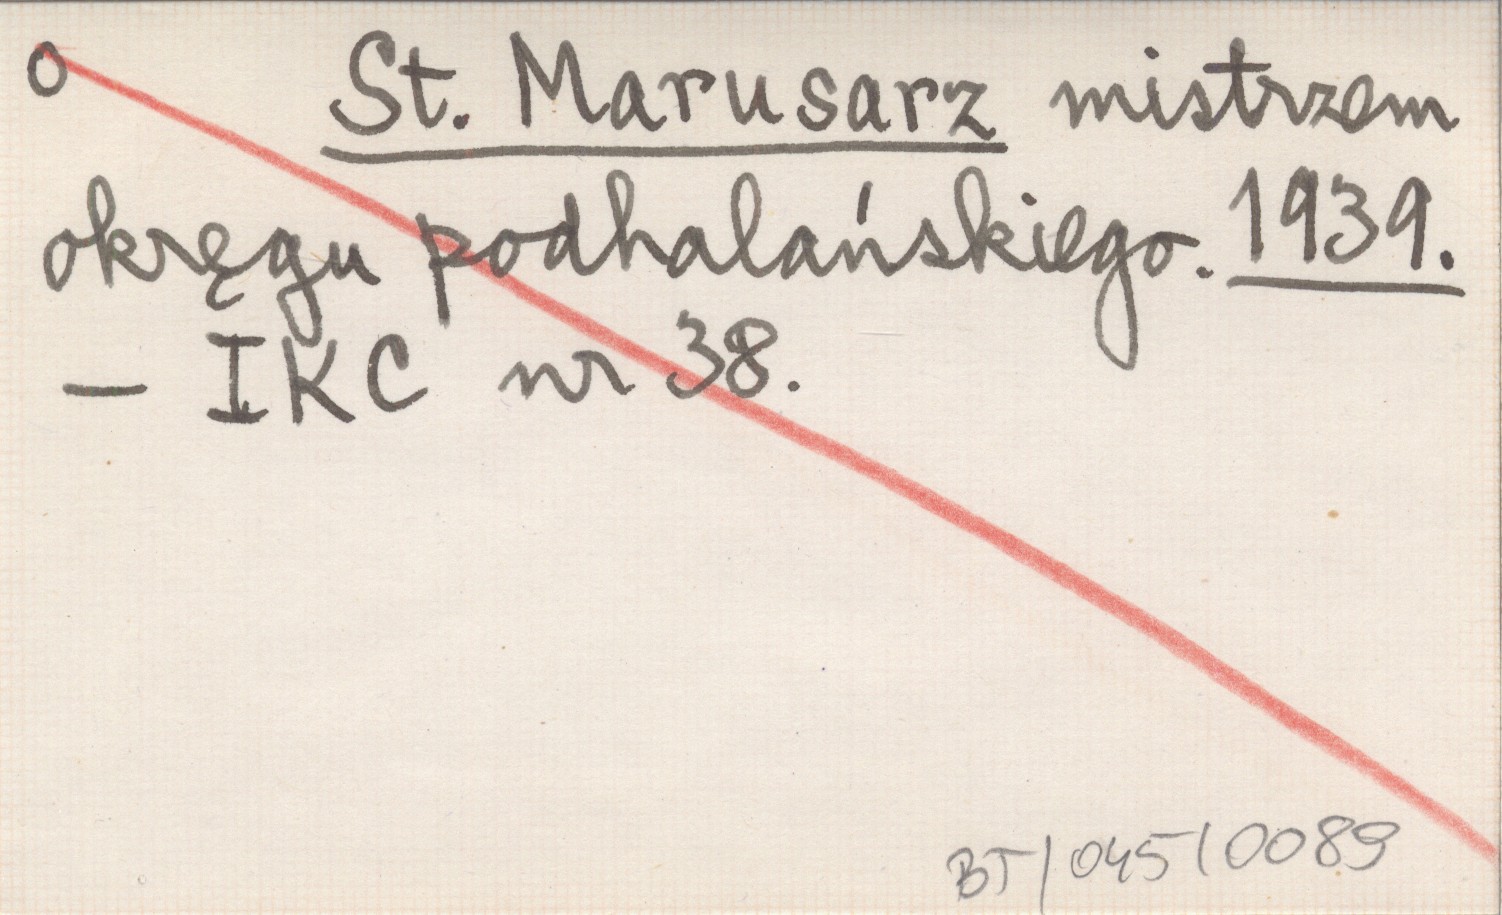 o St. Marusarz mistrzem
okręgu podhalańskiego. 1939.
— IKC nr 38.
BT/045/0089